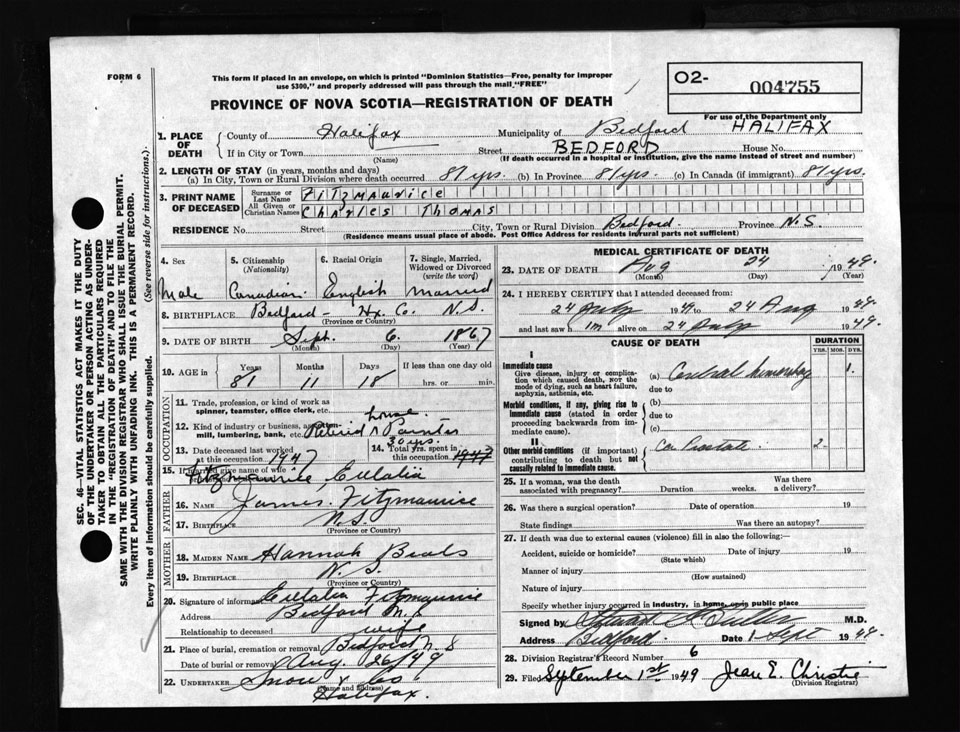 FORM 6
This form if placed in an envelope, on which is printed "Dominion Statistics—Free, penalty for improper
use $300," and properly addressed will pass through the mail "FREE"
PROVINCE OF NOVA SCOTIA—REGISTRATION OF DEATH
O2-
004755
For use of the Department only
HALIFAX
1. PLACE OF DEATH
County of Halifax Municipality of Bedford
BEDFORD
If in City or Town Street House No.
(Name) (If death occurred in a hospital or institution, give the name instead of street and number)
2. LENGTH OF STAY (in years, months and days)
(a) In City, Town or Rural Division where death occurred 81 yrs. (b) In Province 81 yrs. (c) In Canada (if immigrant) 81 yrs.
3. PRINT NAME OF DECEASED
Surname or Last Name Fitzmaurice
All Given or Christian Names Charles Thomas
RESIDENCE No. Street City, Town or Rural Division Bedford. Province N.S.
(Residence means usual place of abode. Post Office Address for residents in rural parts not sufficient)
4. Sex
Male
5. Citizenship (Nationality)
Canadian
6. Racial Origin
English
7. Single, Married, Widowed or Divorced (write the word)
Married
8. BIRTHPLACE Bedford - Hx. Co. N.S.
(Province or Country)
9. DATE OF BIRTH Sept. 6. 1867
(Month) (Day) (Year)
10. AGE in Years Months Days If less than one day old
81 11 18 hrs. or min.
OCCUPATION
11. Trade, profession, or kind of work as
spinner, teamster, office clerk, etc. house
12. Kind of industry or business, as cotton-
mill, lumbering, bank, etc. Retired Painter
13. Date deceased last worked
at this occupation 1947
14. Total yrs. spent in
this occupation 30 yrs. 1947
15. If married give name of wife
Fitzmaurice Eulalia
FATHER
16. NAME James Fitzmaurice
17. BIRTHPLACE N.S.
(Province or Country)
MOTHER
18. MAIDEN NAME Hannah Beals
19. BIRTHPLACE N.S.
(Province or Country)
20. Signature of informant Eulalia Fitzmaurice
Address Bedford N.S.
Relationship to deceased wife
21. Place of burial, cremation or removal Bedford N S
Date of burial or removal Aug. 26/49
22. UNDERTAKER Snow & Co
(Name and Address)
Halifax.
MEDICAL CERTIFICATE OF DEATH
23. DATE OF DEATH Aug 24 1949.
(Month) (Day) (Year)
24. I HEREBY CERTIFY that I attended deceased from:
24 July 1949 to 24 Aug 1949.
and last saw him alive on 24 July 1949.
CAUSE OF DEATH
DURATION
YRS. MOS. DYS.
I
Immediate cause
Give disease, injury or complica-
tion which caused death, NOT the
mode of dying, such as heart failure,
asphyxia, asthenia, etc.
(a) Cerebral hemorrhage 1.
due to
Morbid conditions, if any, giving rise to
immediate cause (stated in order
proceeding backwards from im-
mediate cause).
(b)
due to
(c)
II
Other morbid conditions (if important)
contributing to death but not
causally related to immediate cause.
Ca Prostate. 2-
25. If a woman, was the death
associated with pregnancy? Duration weeks. Was there
a delivery?
26. Was there a surgical operation? Date of operation 19
State findings Was there an autopsy?
27. If death was due to external causes (violence) fill in also the following:—
Accident, suicide or homicide? Date of injury 19
(State which)
Manner of injury
(How sustained)
Nature of injury
Specify whether injury occurred in industry, in home, or in public place
Signed by M.D.
Address Bedford. Date 1 Sept 1949.
28. Division Registrar's Record Number 6
29. Filed September 1st 1949 Jean E. Christie
(Division Registrar)
SEC. 46—VITAL STATISTICS ACT MAKES IT THE DUTY
OF THE UNDERTAKER OR PERSON ACTING AS UNDER-
TAKER TO OBTAIN ALL THE PARTICULARS REQUIRED
IN THE "REGISTRATION OF DEATH" AND TO FILE THE
SAME WITH THE DIVISION REGISTRAR WHO SHALL ISSUE THE BURIAL PERMIT.
WRITE PLAINLY WITH UNFADING INK. THIS IS A PERMANENT RECORD.
Every item of information should be carefully supplied. (See reverse side for instructions.)